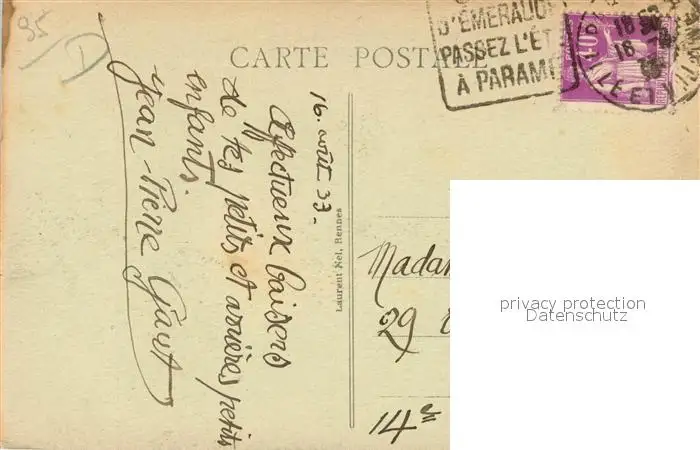 95
D
CARTE POSTALE
D'ÉMERAUDE
PASSEZ L'ÉTÉ
À PARAMÉ
16 33
16. août 33-
Affectueux baisers
de tes petits et arrières petits
enfants.
Jean-Pierre
Laurent Nel, Rennes
Madam
29
14e
privacy protection
Datenschutz